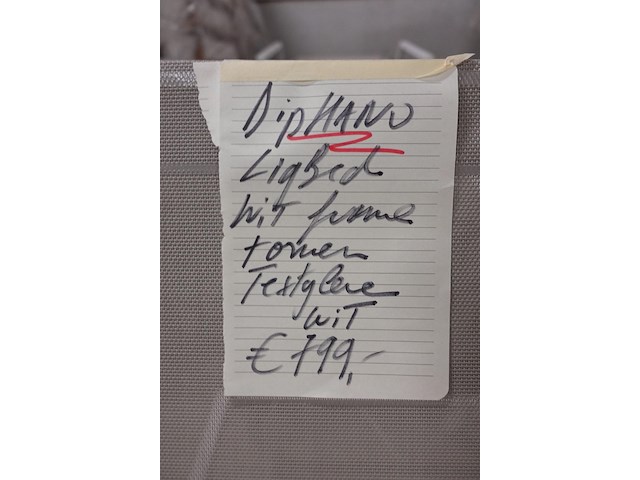 DipHANO
LigBed
WiT frame
tomen
Textylene
WiT
€ 799,-